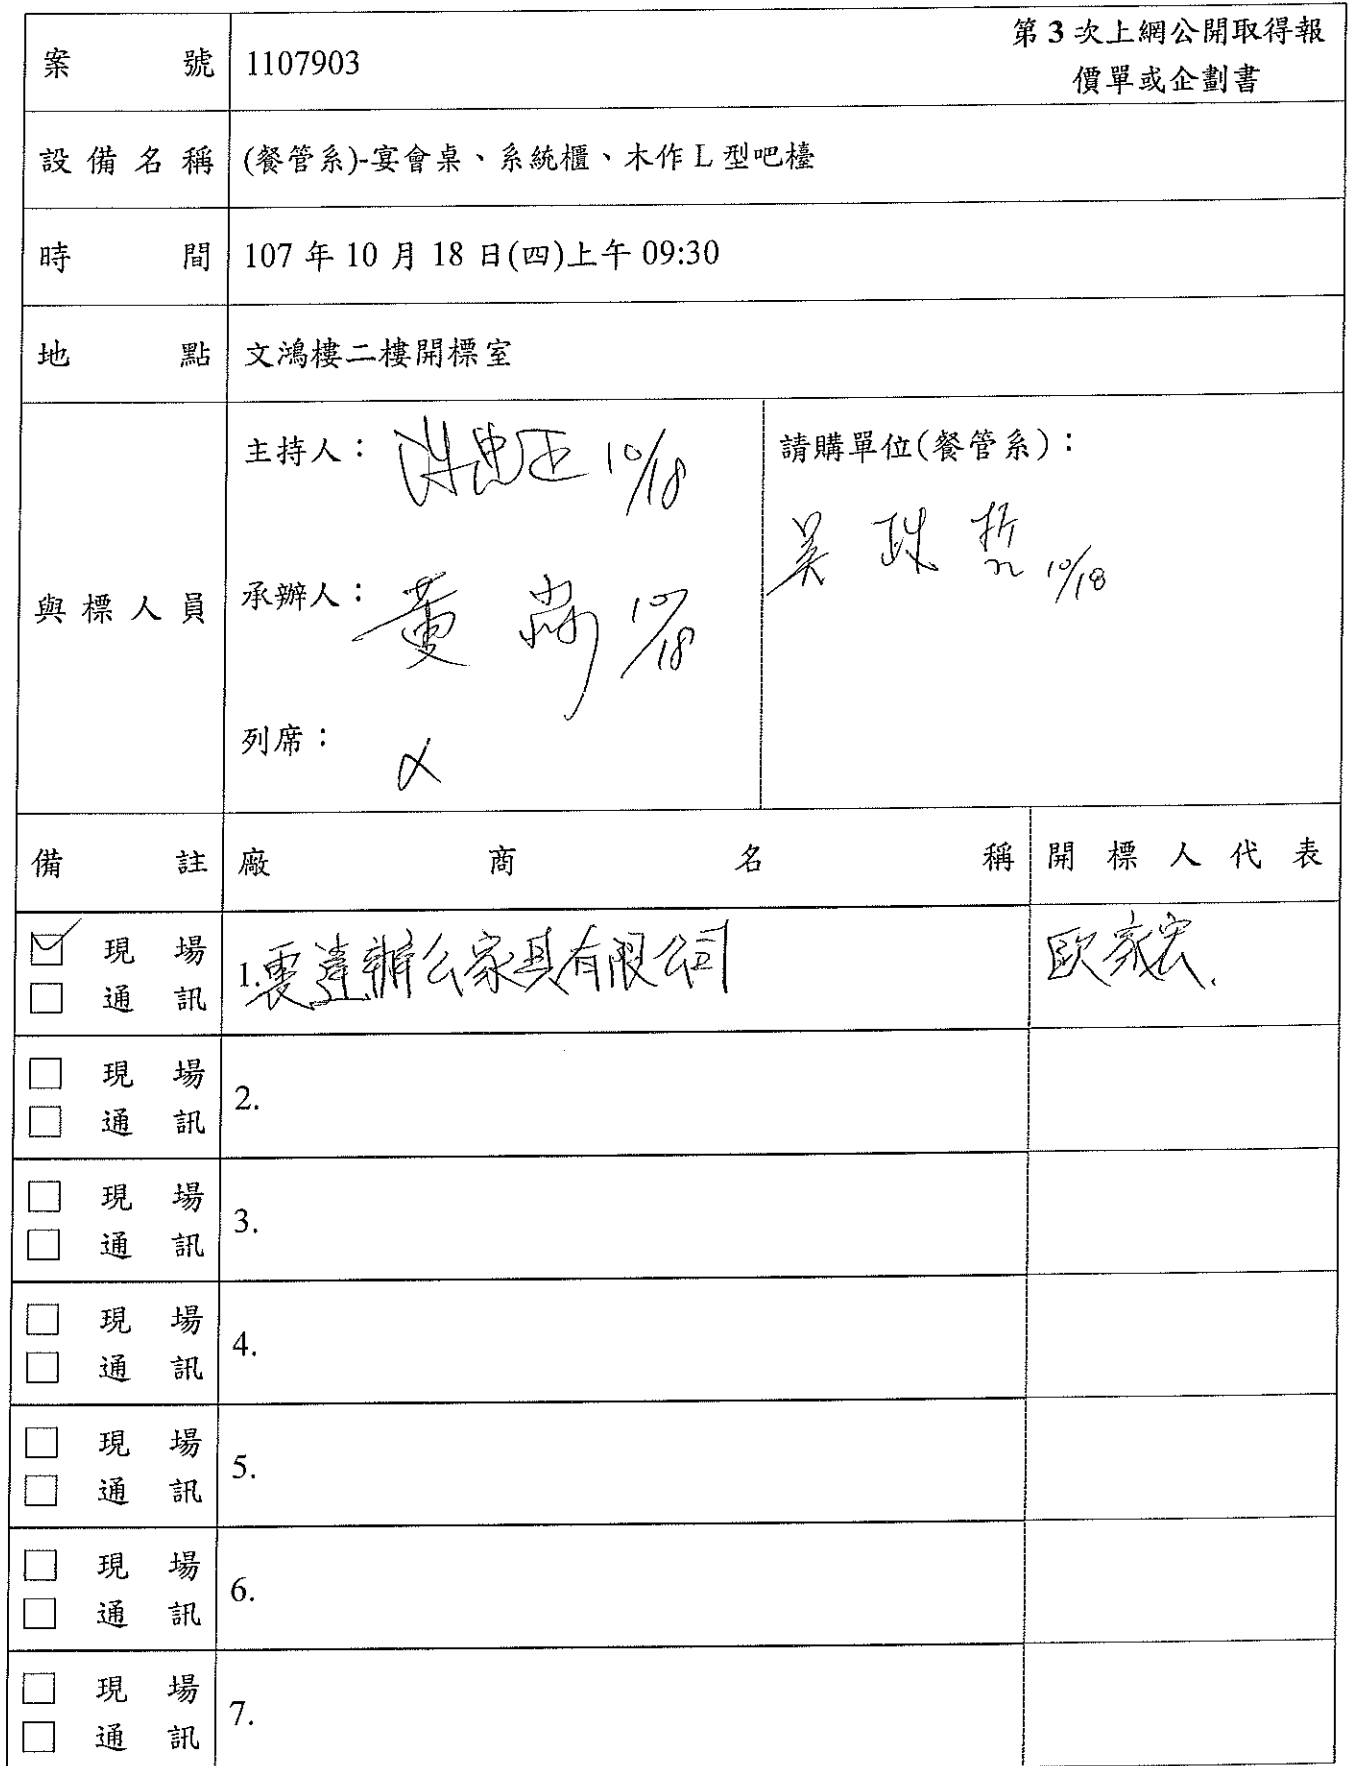 案號 1107903 第 3 次上網公開取得報
價單或企劃書
設備名稱 (餐管系)-宴會桌、系統櫃、木作 L 型吧檯
時間 107 年 10 月 18 日(四)上午 09:30
地點 文鴻樓二樓開標室
與標人員
主持人： 10/18
承辦人：黃 10/18
列席：
請購單位(餐管系)：
吳 哲 10/18
備註 廠商名稱 開標人代表
現場 1. 辦公家具有限公司 歐家宏
通訊
現場
通訊 2.
現場
通訊 3.
現場
通訊 4.
現場
通訊 5.
現場
通訊 6.
現場
通訊 7.